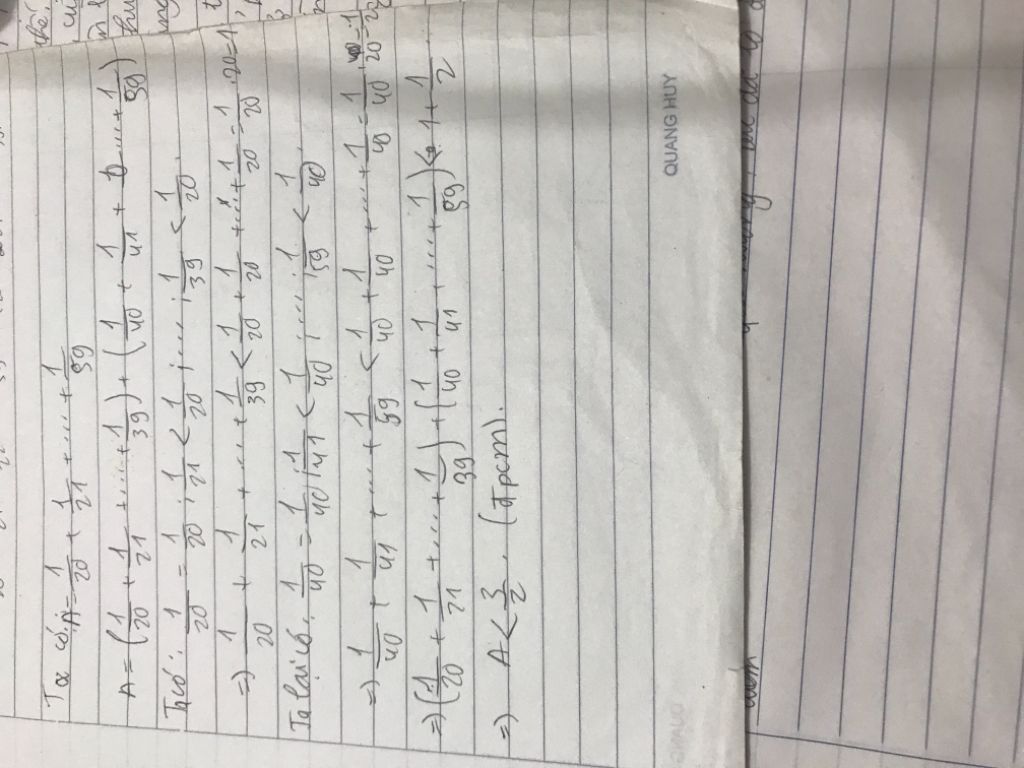 Ta có: A = 1/20 + 1/21 + ..... + 1/59
A = (1/20 + 1/21 + ..... + 1/39) + (1/40 + 1/41 + ..... + 1/59)
Ta có: 1/20 = 1/20 ; 1/21 < 1/20 ; ..... ; 1/39 < 1/20.
=> 1/20 + 1/21 + ..... + 1/39 < 1/20 + 1/20 + ..... + 1/20 = 1/20 . 20 = 1
Ta lại có: 1/40 = 1/40 ; 1/41 < 1/40 ; ..... ; 1/59 < 1/40.
=> 1/40 + 1/41 + ..... + 1/59 < 1/40 + 1/40 + ..... + 1/40 = 1/40 . 20 = 1/2
=> (1/20 + 1/21 + ..... + 1/39) + (1/40 + 1/41 + ..... + 1/59) < 1 + 1/2
=> A < 3/2 . (đpcm).
QUANG HUY